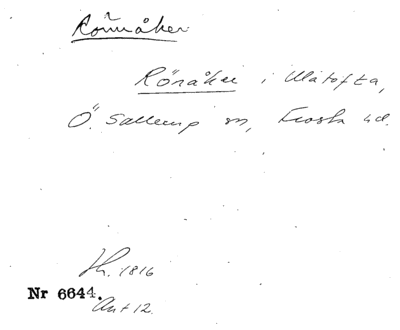 Rönnåker
Rönåker i Ulåtofta,
Ö. Sallerup sn, Frosta hd.
Jh. 1816
Nr 6644.
Ant 12.